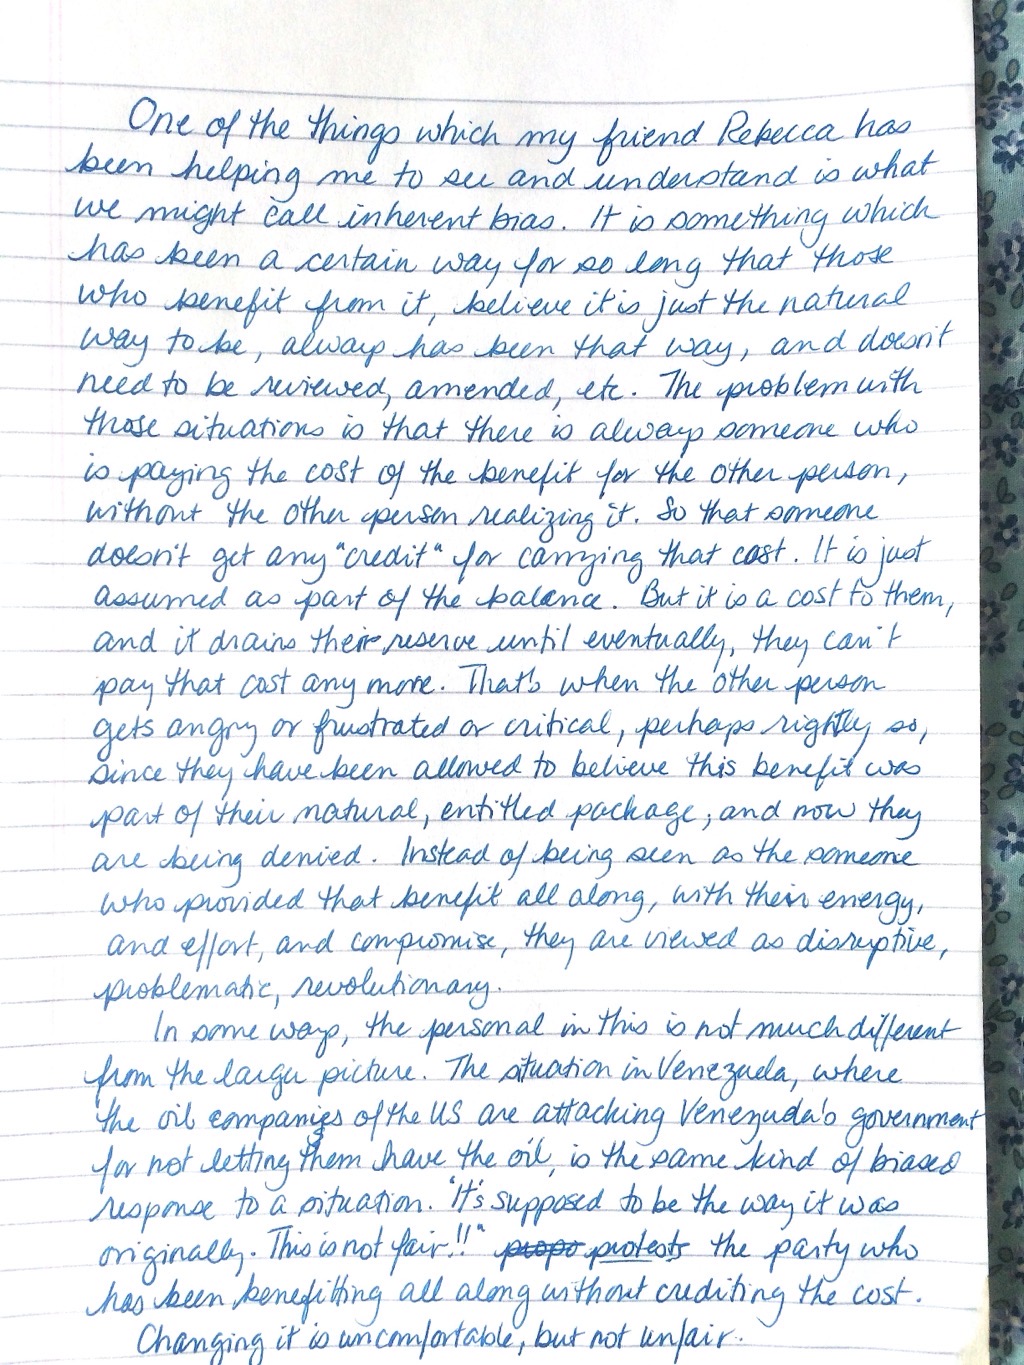 One of the things which my friend Rebecca has
been helping me to see and understand is what
we might call inherent bias. It is something which
has been a certain way for so long that those
who benefit from it, believe it is just the natural
way to be, always has been that way, and doesn't
need to be reviewed, amended, etc. The problem with
those situations is that there is always someone who
is paying the cost of the benefit for the other person,
without the other person realizing it. So that someone
doesn't get any "credit" for carrying that cost. It is just
assumed as part of the balance. But it is a cost to them,
and it drains their reserve until eventually, they can't
pay that cost any more. That's when the other person
gets angry or frustrated or critical, perhaps rightly so,
since they have been allowed to believe this benefit was
part of their natural, entitled package, and now they
are being denied. Instead of being seen as the someone
who provided that benefit all along, with their energy,
and effort, and compromise, they are viewed as disruptive,
problematic, revolutionary.
In some ways, the personal in this is not much different
from the larger picture. The situation in Venezuela, where
the oil companies of the US are attacking Venezuela's government
for not letting them have the oil, is the same kind of biased
response to a situation. "It's supposed to be the way it was
originally. This is not fair!!" propo protests the party who
has been benefitting all along without crediting the cost.
Changing it is uncomfortable, but not unfair.